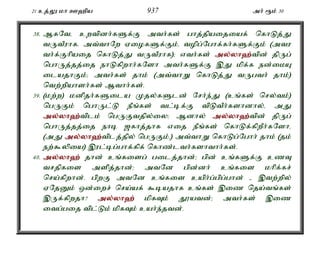 21 உத்லூ மா ஊஹிய 937 அர் ரூம் 30
38. ஆகவே, உறவினர்களுக்கு அவர்கள் பாத்தியதையைக் கொடுத்து
வருவீராக. அவ்வாறே ஏழைகளுக்கும், வழிப்போக்கர்களுக்கும் (அவர
வர்க்குரியதை கொடுத்து வருவீராக). எவர்கள் அல்லாஹ்வின் திருப்
பொருத்தத்தை நாடுகிறார்களோ அவர்களுக்கு இது மிக்க நன்மையு
டையதாகும். அவர்கள் தாம் (அவ்வாறு கொடுத்து வருபவர் தாம்)
வெற்றியாளர்கள் ஆவார்கள்.
39. (மற்ற) மனிதர்களுடைய முதல்களுடன் சேர்ந்து (உங்கள் செல்வம்)
பெருகும் பொருட்டு நீங்கள் வட்டிக்கு விடுவீர்களானால், அது
அல்லாஹ்விடம் பெருகுவதில்லை; ஆனால் அல்லாஹ்வின் திருப்
பொருத்தத்தை நாடி ஜகாத்தாக எதை நீங்கள் கொடுக்கிறீர்களோ,
(அது அல்லாஹ்விடத்தில் பெருகும்.) அவ்வாறு கொடுப்போர் தாம் (தம்
நற்கூலியை) இரட்டிப்பாக்கிக் கொண்டவர்களாவார்கள்.
40. அல்லாஹ் தான் உங்களைப் படைத்தான்; பின் உங்களுக்கு உணவு
வசதிகளை அளித்தான்; அவனே பின்னர் உங்களை மரிக்கச்
செய்கிறான். பிறகு அவனே உங்களை உயிர்ப்பிப்பான் - இவற்றில்
ஏதேனும் ஒன்றைச் செய்யக் கூடியதாக உங்கள் இணை தெய்வங்கள்
இருக்கிறதா? அல்லாஹ் மிகவும் தூயவன்; அவர்கள் இணை
வைப்பதை விட்டும் மிகவும் உயர்ந்தவன்.